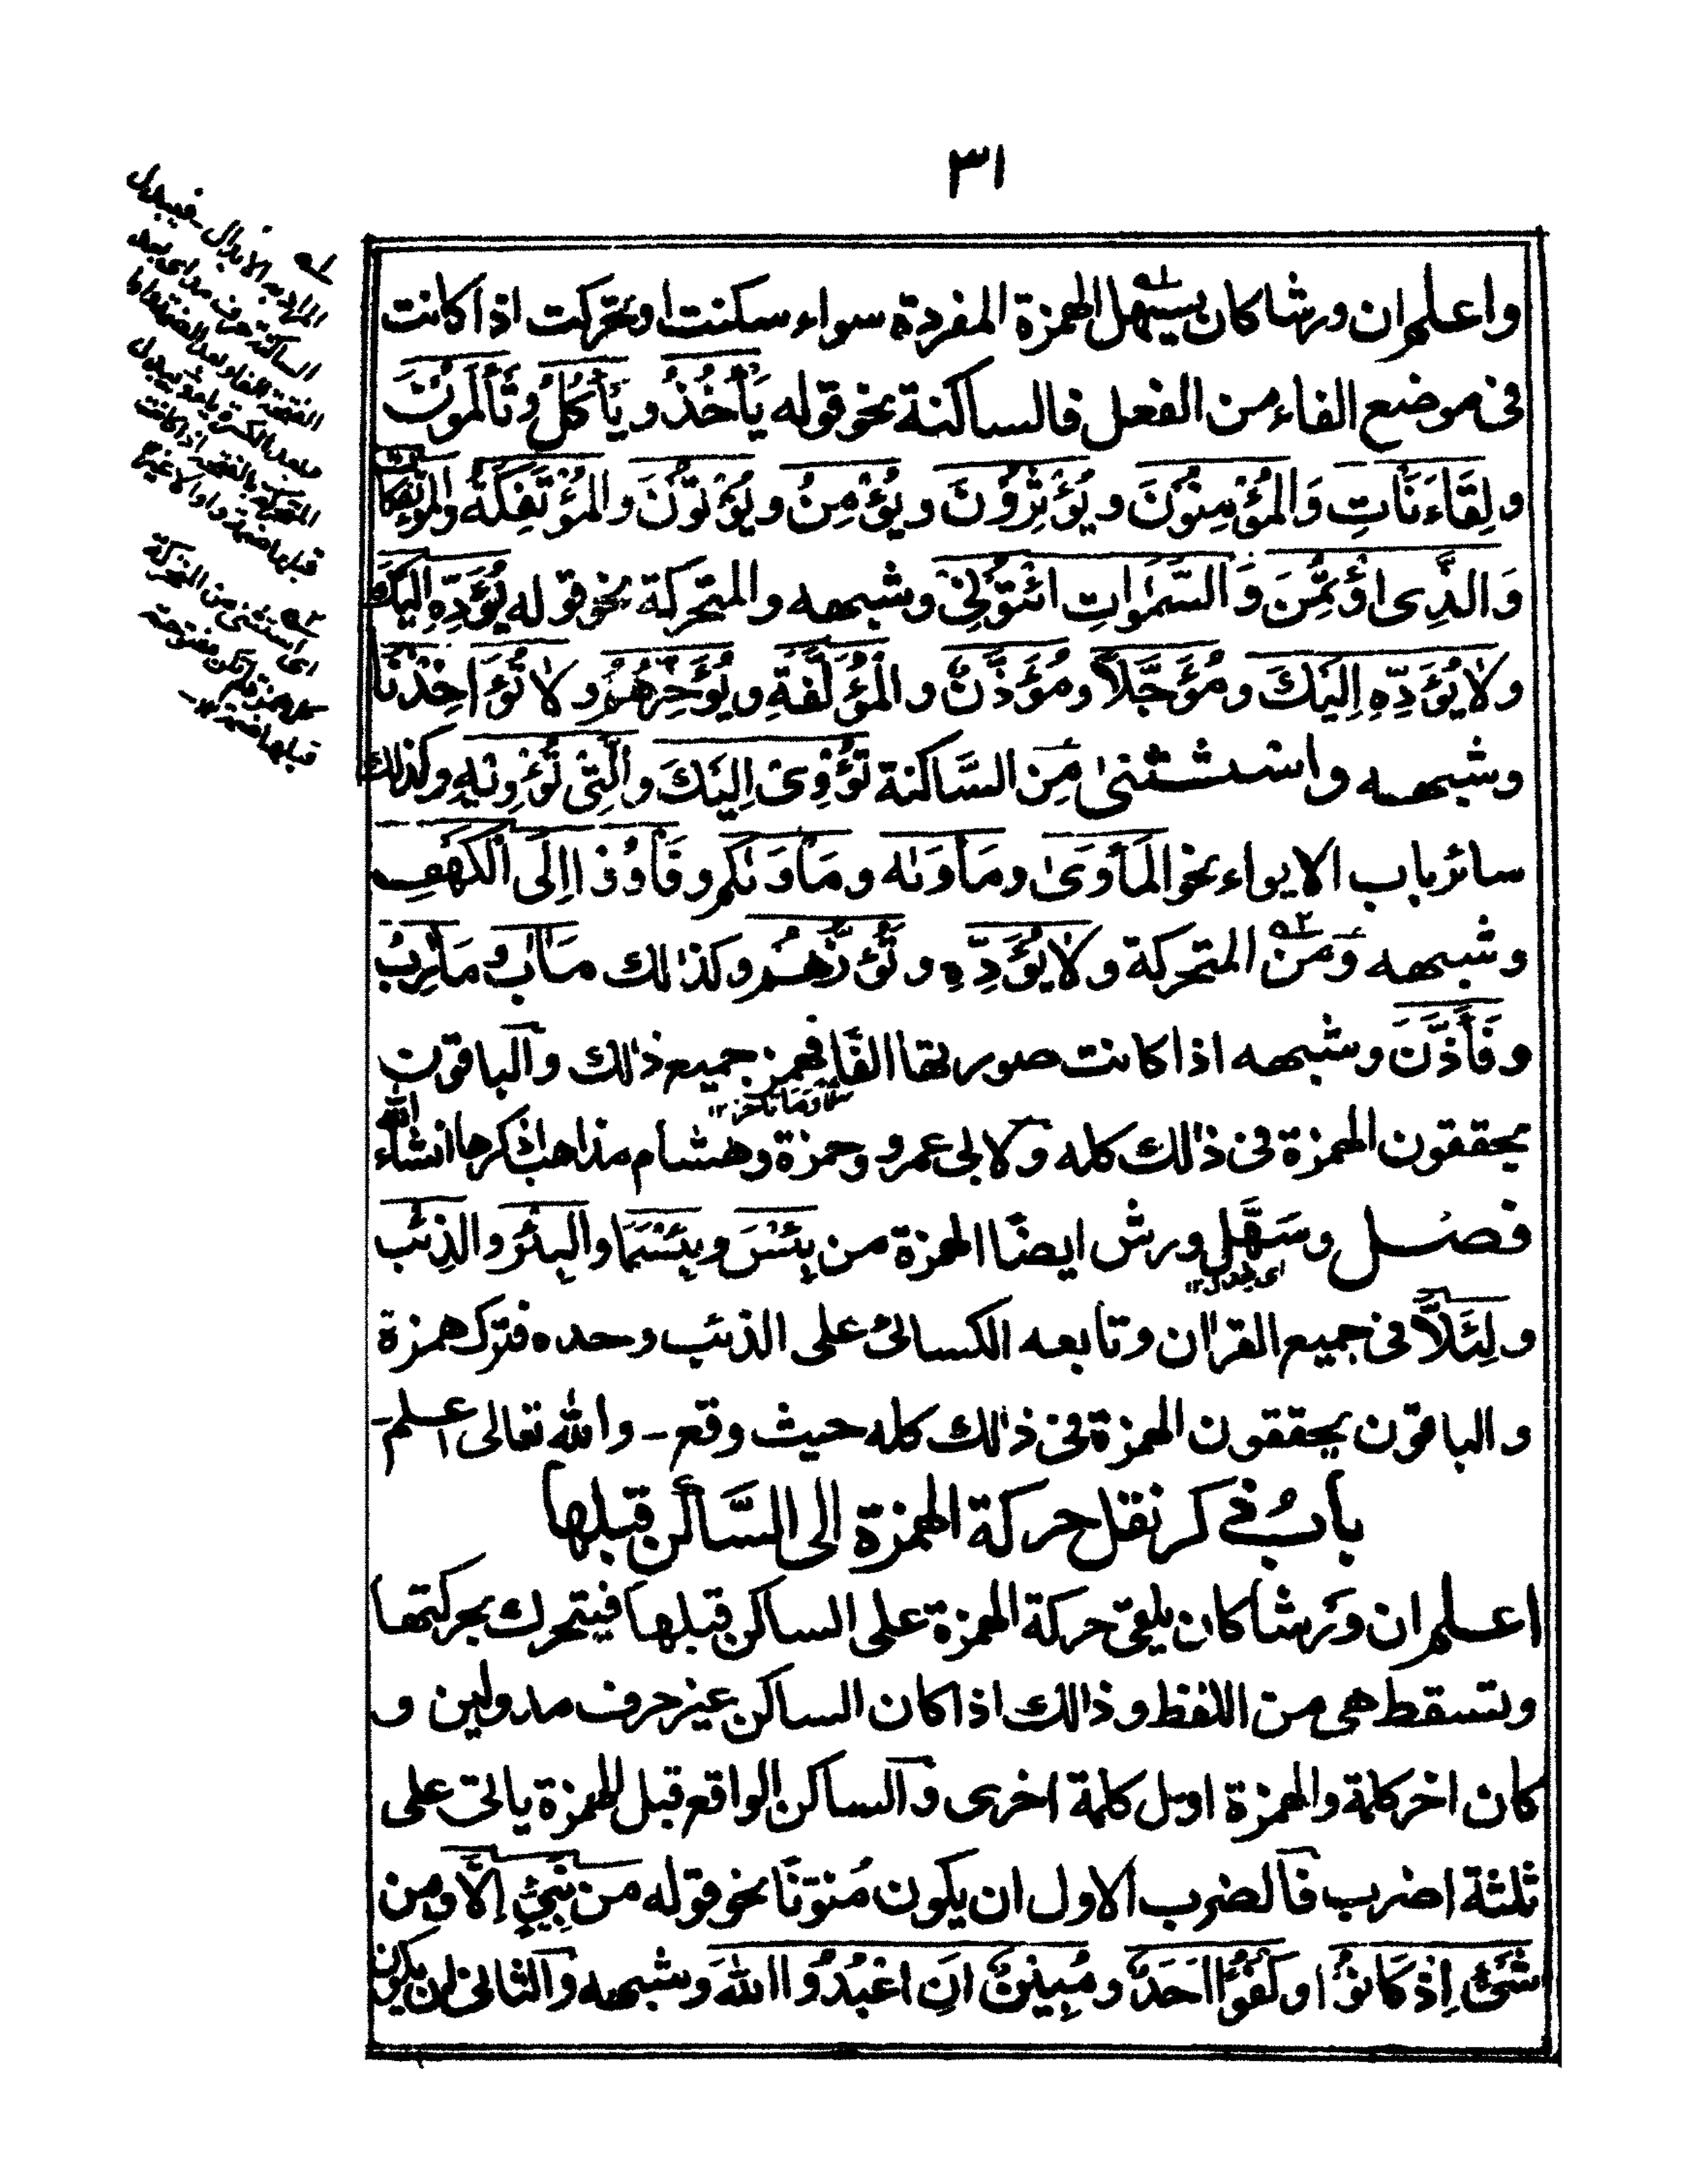 ٣١
واعلم ان ورشا كان يسهل الهمزة المفردة سواء سكنت او تحركت اذا كانت
فى موضع الفاء من الفعل فالساكنة نحو قوله يَأْخُذُ و يَأْكُلُ و تَأْلَمُونَ
و لِقَاءَنَا ائْتِ وَالْمُؤْمِنُوْنَ و يُؤْثِرُوْنَ و يُؤْمِنُ و يُؤْتُوْنَ و الْمُؤْتَفِكَةَ و الْمُؤْتَفِكَاتُ
وَ الَّذِى اؤْتُمِنَ وَ السَّمٰوَاتِ ائْتُوْنِىْ و شبهه والمتحركة نحو قوله يُؤَدِّهٖ اِلَيْكَ
و لَا يُؤَدِّهٖ اِلَيْكَ و مُؤَجَّلًا و مُؤَذِّنٌ و الْمُؤَلَّفَةِ و يُؤَخِّرُهُمْ و لَا تُؤَاخِذْنَا
و شبهه واستثنىٰ مِن السَّاكنة تُؤْوِىْ اِلَيْكَ و الَّتِىْ تُؤْوِيْهِ وكذلك
سائر باب الايواء نحو الْمَأْوَىٰ و مَأْوَىٰه و مَأْوَىٰكم و فَأْوٗا اِلَى الْكَهْفِ
و شبهه وَمن المتحركة و لَا يُؤَدِّهٖ و تَؤُزُّهُمْ وكذٰلك مَاٰب و مَاٰرِبُ
و فَأَذَّنَ و شبهه اذا كانت صورتها الفًا فهمز جميع ذٰلك والباقون
مثلا وَمَا تأخر ١٢
يحققون الهمزة فى ذٰلك كله ولابى عمرو وحمزة وهشام مذاهب اذكرها انشاء الله
فصل و سَهَّل ورش ايضًا الهمزة من بِئْسَ و بِئْسَمَا و الْبِئْرَ و الذِئْب
اى يبدل ١٢
و لِئَلَّا فى جميع القراٰن وتابعه الكسائى على الذئب وحده فترك همزة
و الباقون يحققون الهمزة فى ذٰلك كله حيث وقع - والله تعالى اعلم -
بابُ فى ذكر نقل حركة الهمزة الى السَّاكن قبلها
اعلم ان وَرشا كان يلقى حركة الهمزة على الساكن قبلها فيتحرك بحركتها
وتسقط هى من اللفظ وذالك اذا كان الساكن غير حرف مد ولين و
كان اخر كلمة والهمزة اول كلمة اخرى والساكن الواقع قبل الهمزة ياتى على
ثلثة اضرب فالضرب الاول ان يكون مُنوّنًا نحو قوله من نَبِىٍّ اِلَّا و من
شَىْءٍ اِذْ كَانُوْا و كُفُوًا اَحَدٌ و مُبِيْنٌ اَنِ اعْبُدُوا اللّٰهَ و شبهه والثانى ان يكون
له المراد به الابدال - فيبدل
الساكنة حرف مد اى بعد
الفتحة الفا وبعد الضمة واوا
وبعد الكسرة ياء ويبدل
المتحركة بالفتحة اذا كانت
قبلها ضمة واوا لا غير
٢ه
اى استثنى من المتحركة
كل همزة لم تكن مفتوحة
قبلها ضمة ١٢-